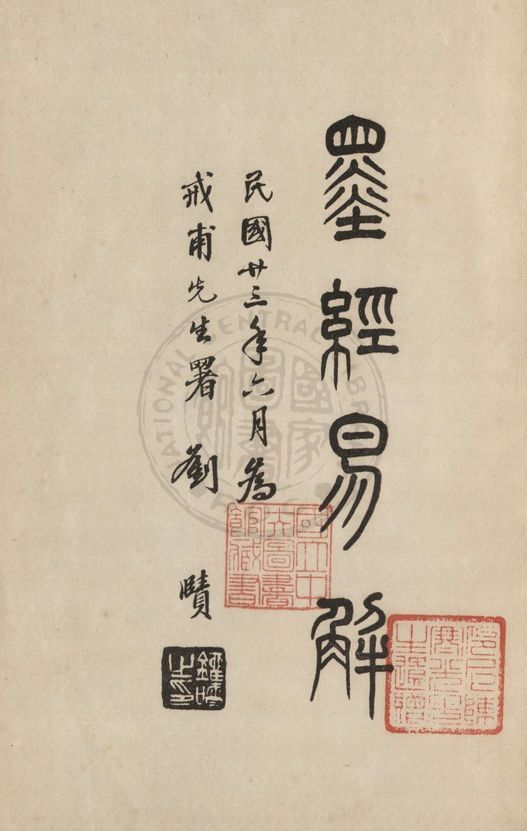 墨經易解
民國廿三年六月為
戒甫先生署 劉賾
國立中
央圖書
館藏書
NATIONAL CENTRAL LIBRARY